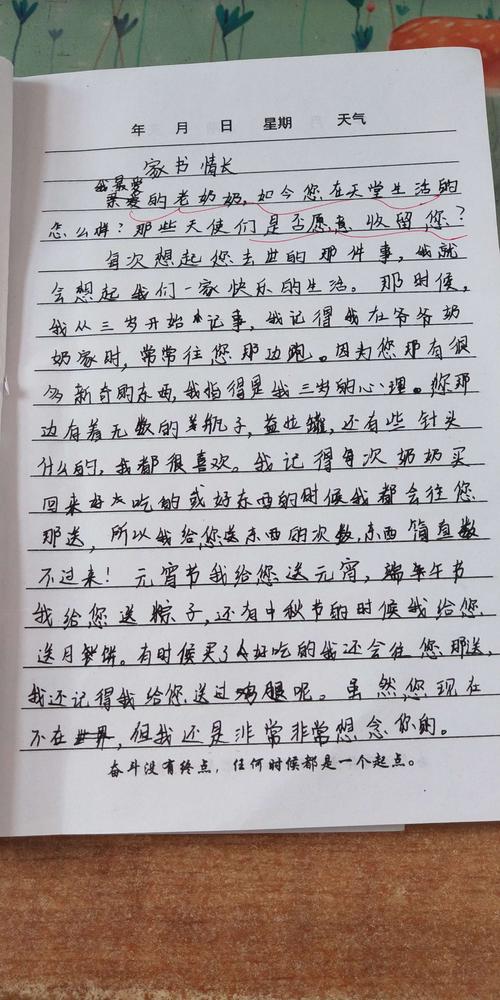 年 月 日 星期 天气
家书情长
我最爱
亲爱的老奶奶,如今您在天堂生活的
怎么样?那些天使们是否愿意收留您?
每次想起您去世的那件事,我就
会想起我们一家快乐的生活。那时候,
我从三岁开始记事,我记得我在爷爷奶
奶家时,常常往您那边跑。因为您那有很
多新奇的东西,我指得是我三岁的心理。您那
边有着无数的美瓶子,盐罐,还有些针头
什么的,我都很喜欢。我记得每次奶奶买
回来好点吃的或好东西的时候我都会往您
那送,所以我给您送东西的次数,东西简直数
不过来!元宵节我给您送元宵,端午节
我给您送粽子,还有中秋节的时候我给您
送月饼。有时候买了好吃的我还会往您那送,
我还记得我给您送过鸡腿呢。虽然您现在
不在世界,但我还是非常非常想念你的。
奋斗没有终点,任何时候都是一个起点。